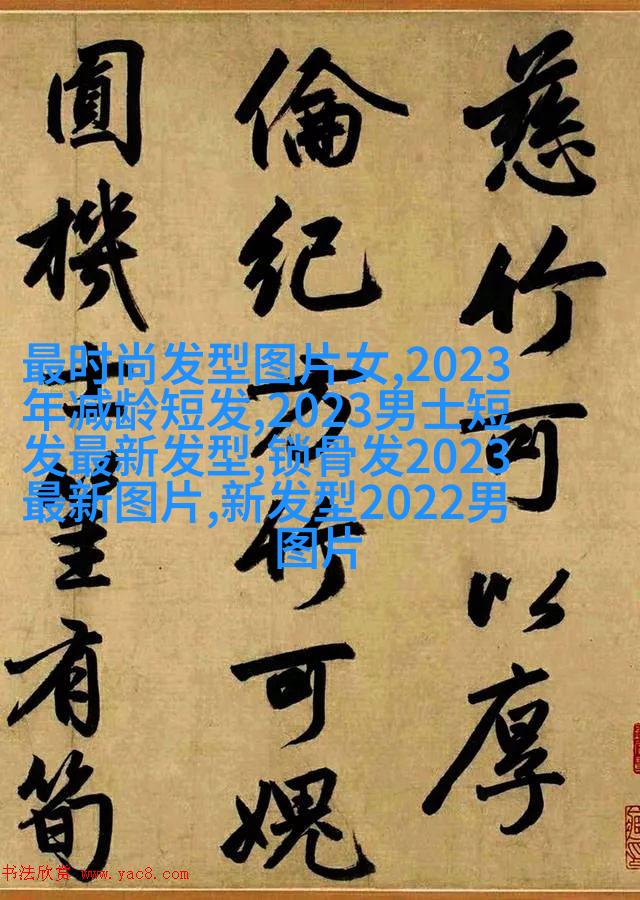 慈竹可以厚
倫紀方竹可愧
圓機士有筍
最时尚发型图片女,2023
年减龄短发,2023男士短
发最新发型,锁骨发2023
最新图片,新发型2022男
图片
书法欣赏 www.yac8.com